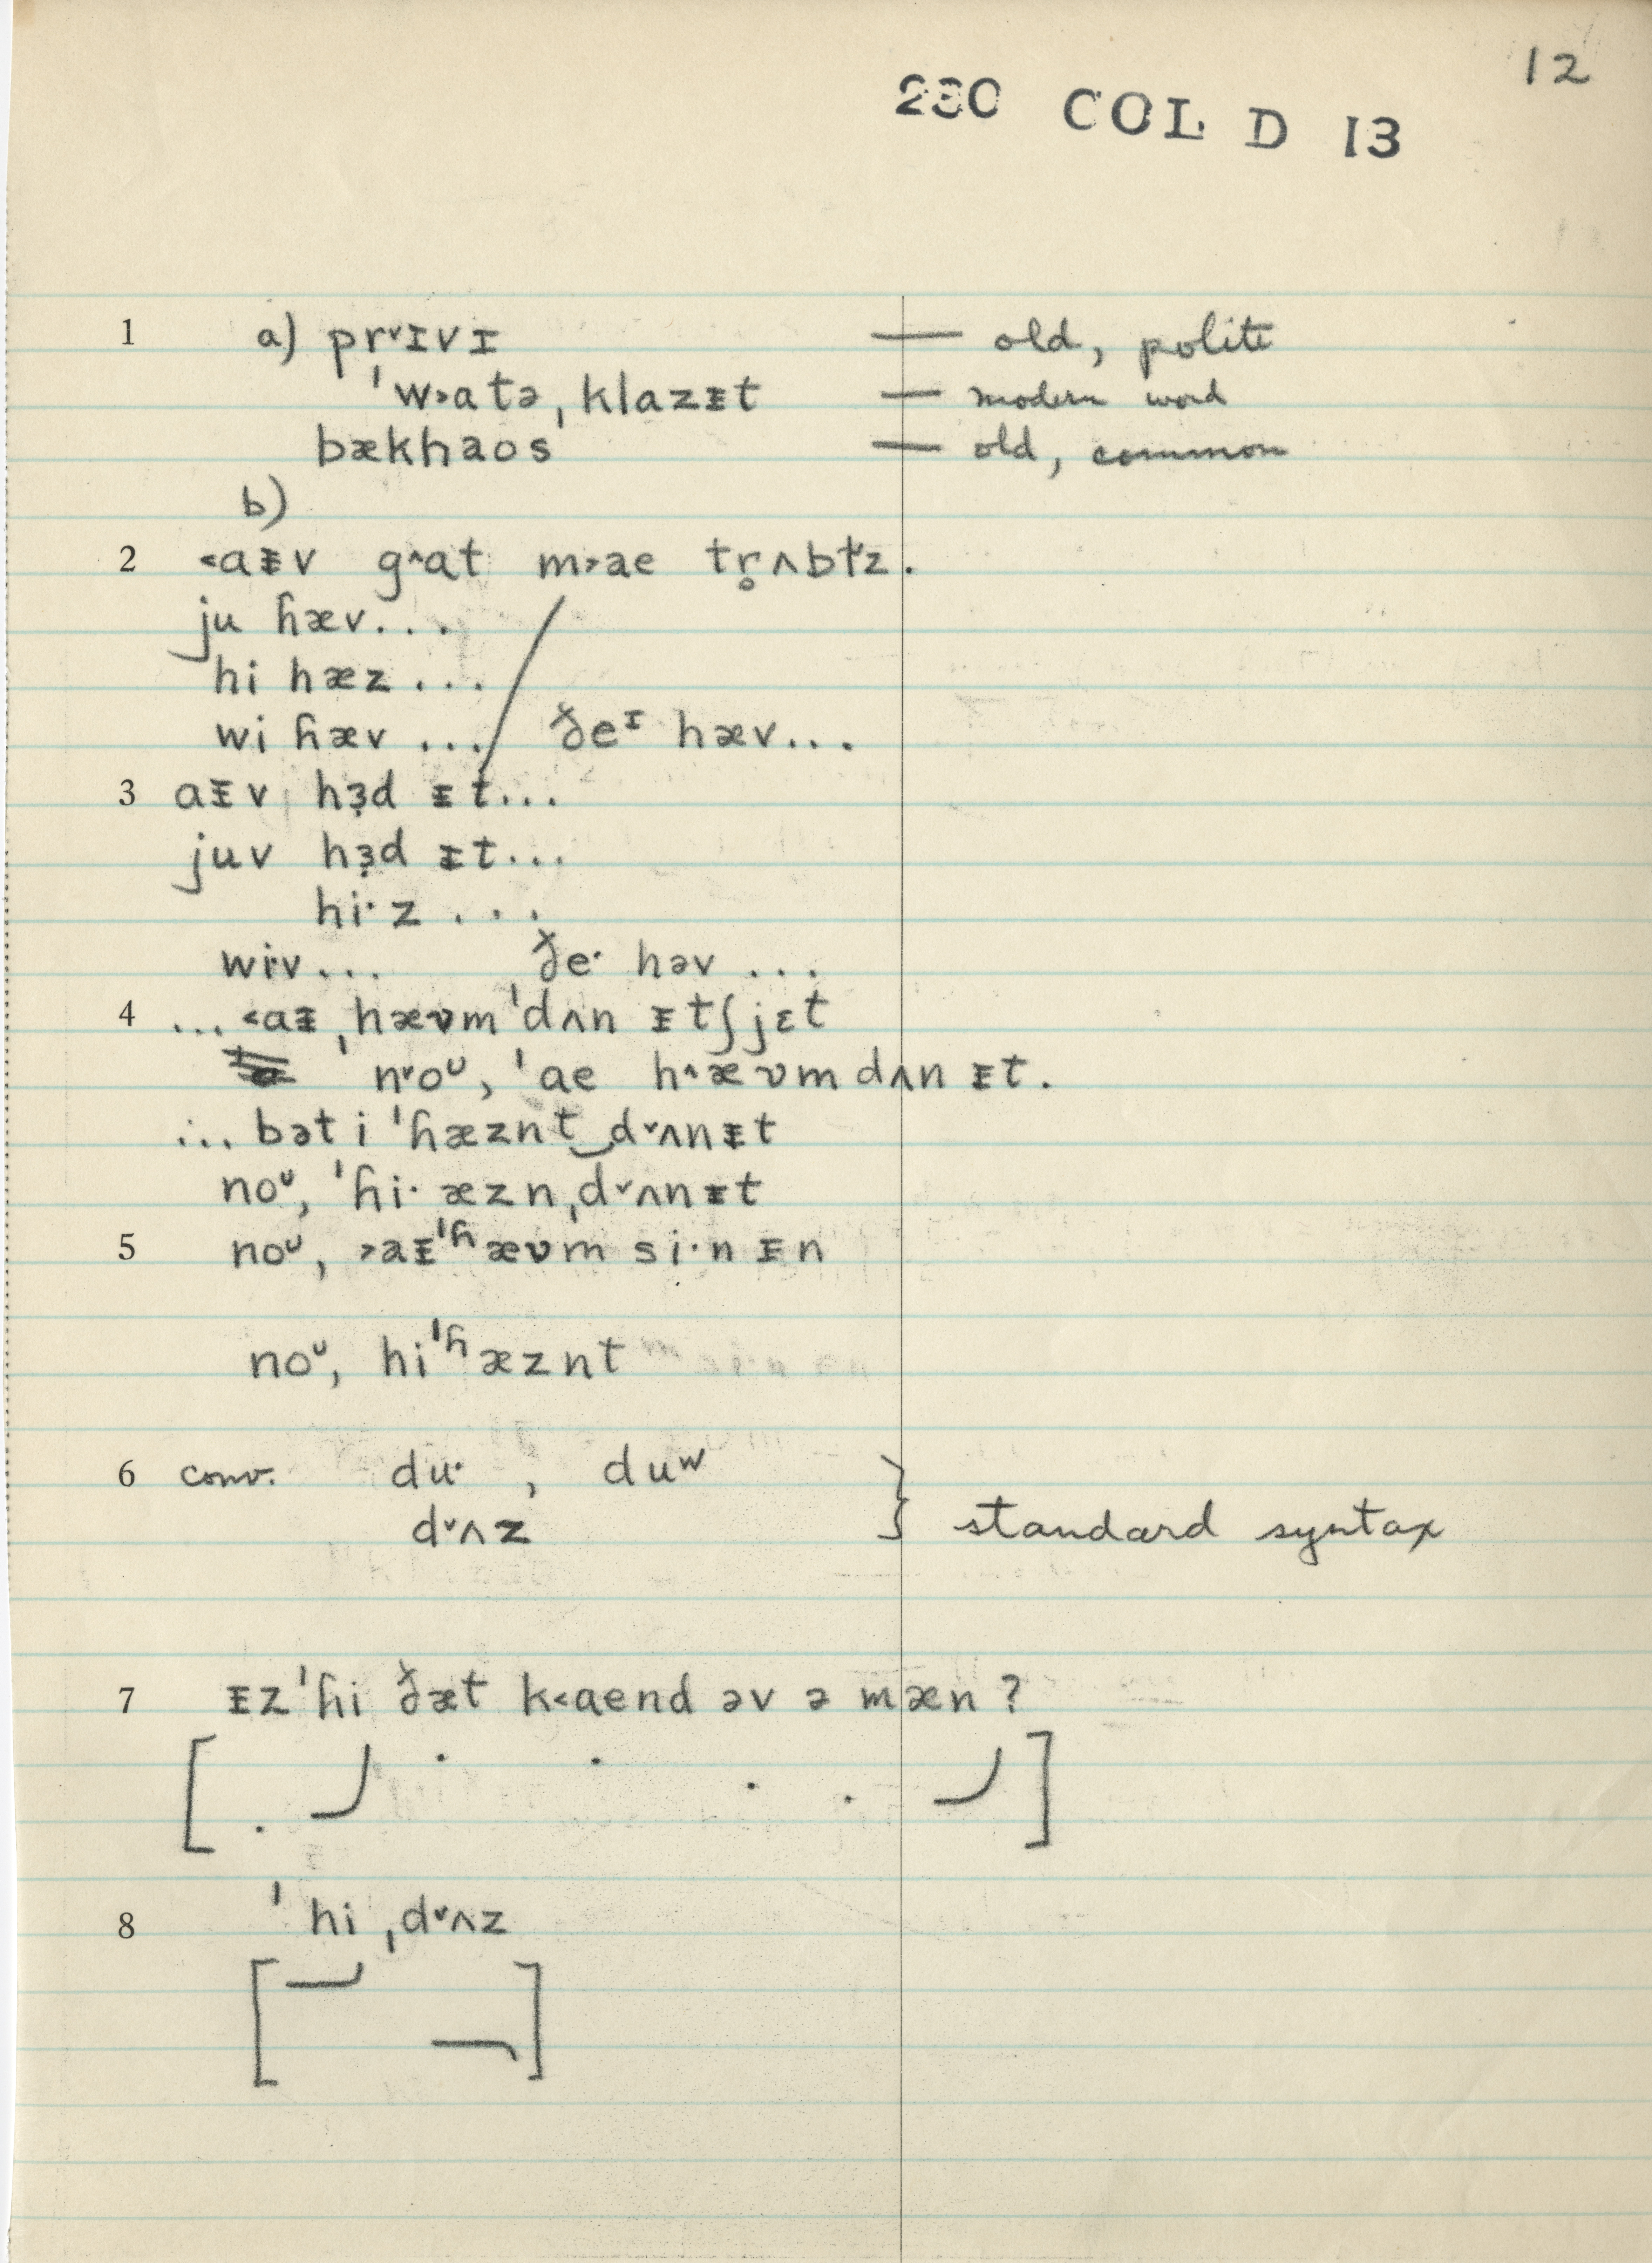 12
230 COL D 13
1 a) pr˅ɪvɪ — old, polite
ˈw˃atə, klazᵻt — modern word
bækhaos — old, common
b)
2 ˂aᵻv g˄at m˃ae tr̥ʌbɫz.
ju ɦæv...
hi hæz...
wi ɦæv ... / ðeᶦ hæv...
3 aᵻv hɜ̣d ᵻt...
juv hɜ̣d ᵻt...
hi·z ...
wi·v... ðe· həv ...
4 ... ˂aᵻ ˌhæʋmˈdʌn ᵻtʃjɛt
n˅oᶷ, ˈae h˄æʋmdʌn ᵻt.
... bət i ˈɦæznt‿d˅ʌnᵻt
noᶷ, ˈɦi· æznˌd˅ʌnᵻt
5 noᶷ, ˃aᵻˈʱæʋm si·n ᵻn
noᶷ, hiˈʱæznt
6 conv. du· , duʷ
d˅ʌz } standard syntax
7 ᵻzˈɦi ðæt k˂aend əv ə mæn ?
[ ]
8 ˈhi ˌd˅ʌz
[ ]